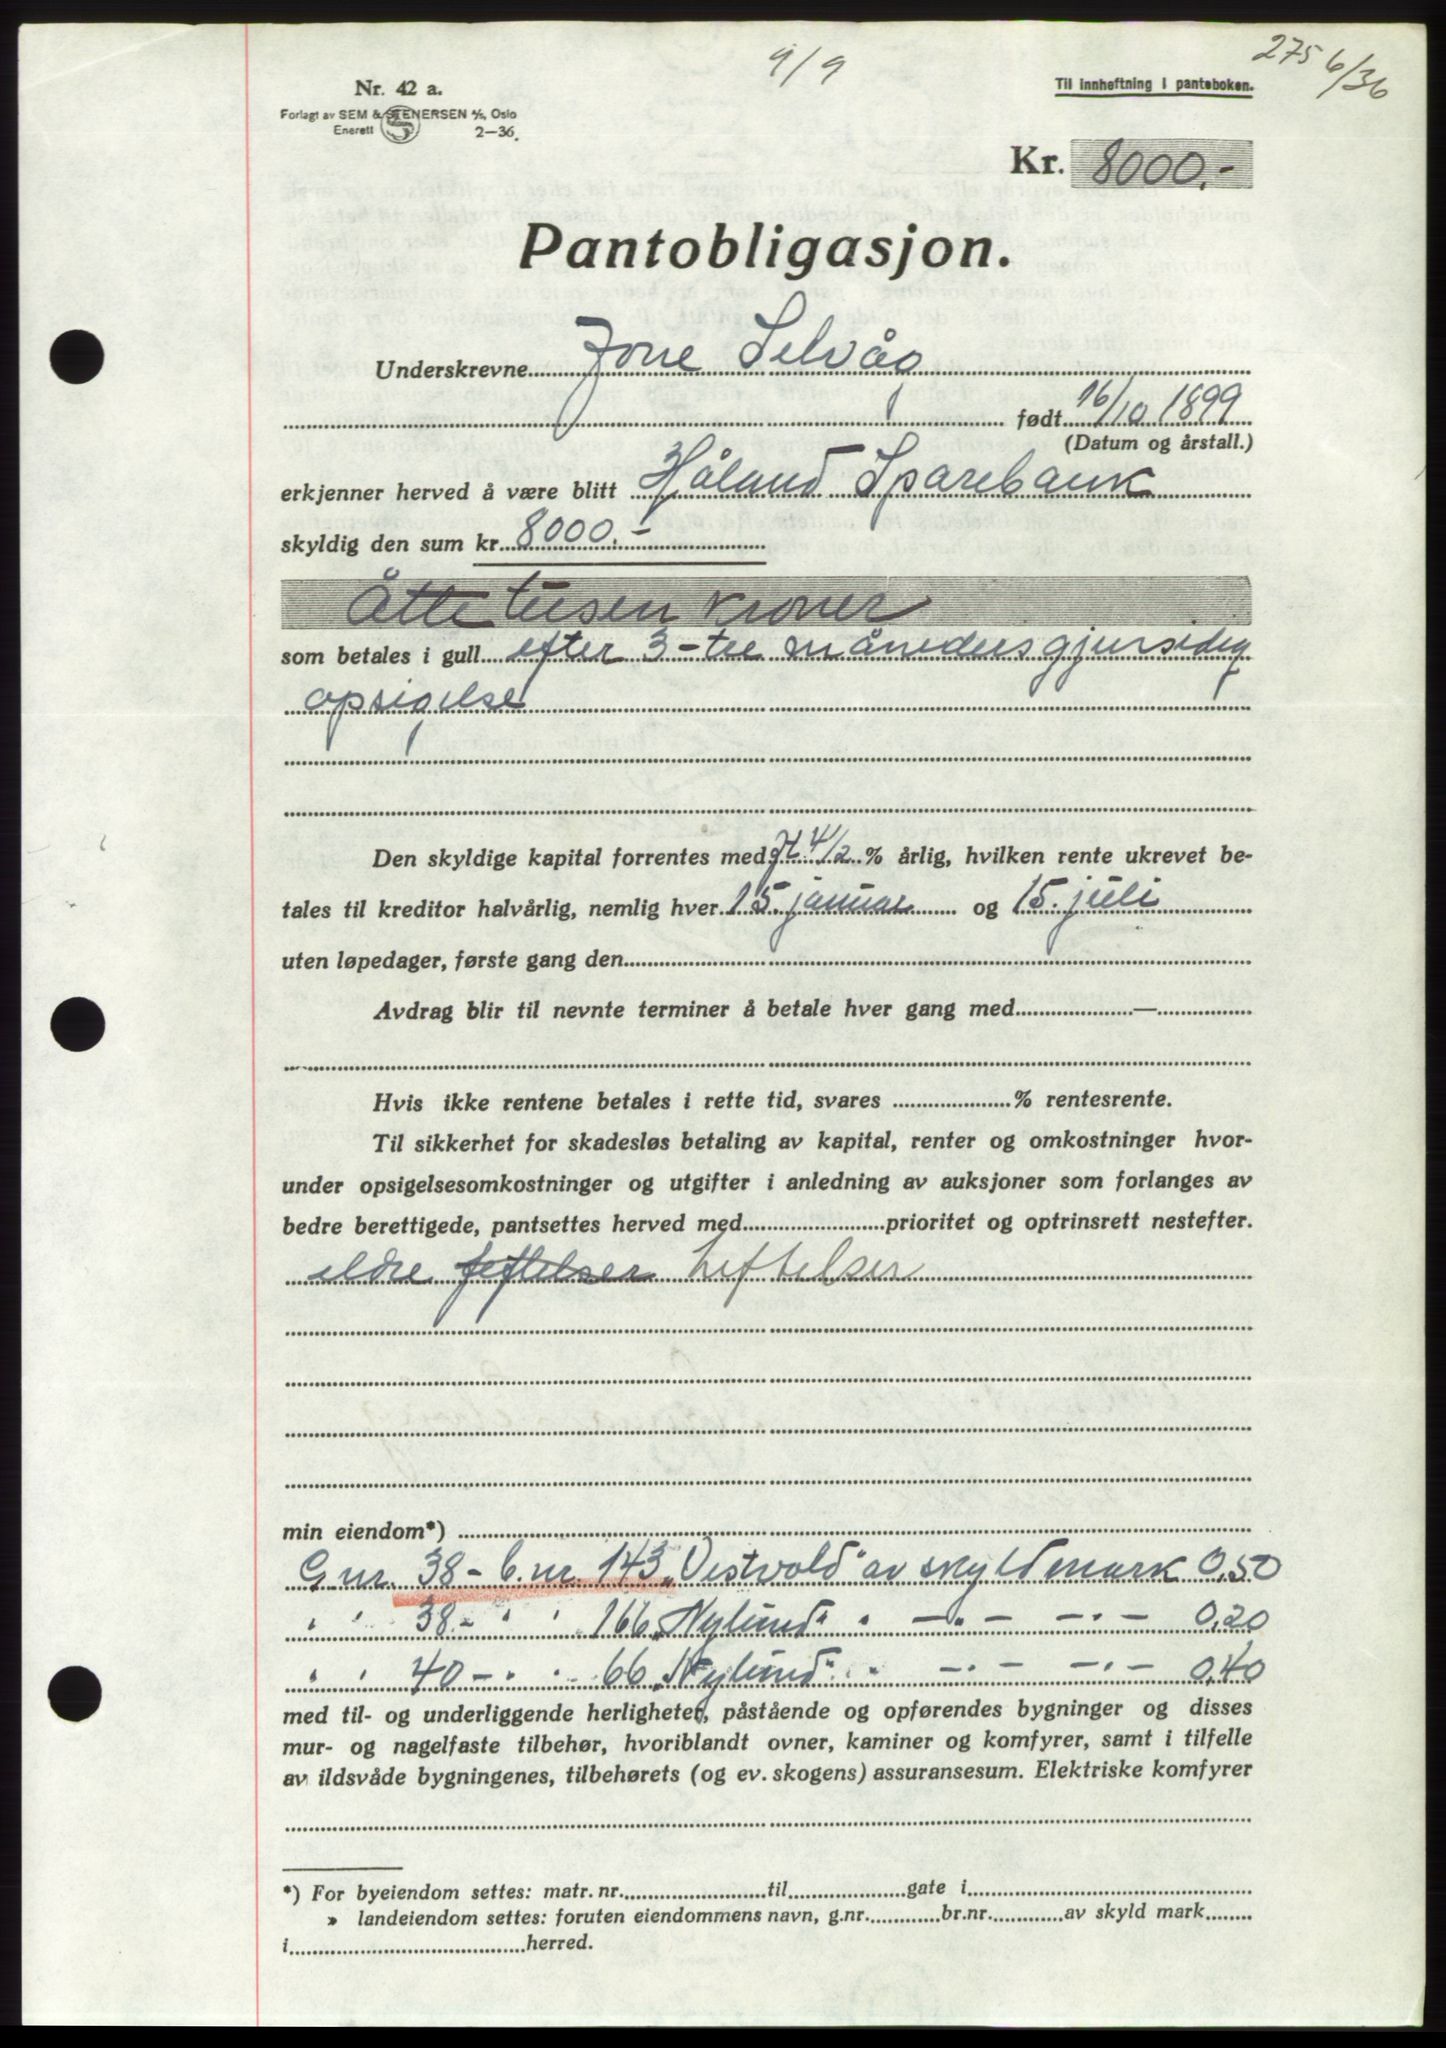 9/9
2756/36
Nr. 42 a.
Til innheftning i panteboken.
Forlagt av SEM & STENERSEN A/S, Oslo
Enerett 2—36.
Kr. 8000.-
Pantobligasjon.
Underskrevne Jone Selvåg
født 16/10 1899
(Datum og årstall.)
erkjenner herved å være blitt Håland Sparebank
skyldig den sum kr. 8000.-
Åtte tusen kroner
som betales i gull efter 3 - tre måneders gjensidig
opsigelse
Den skyldige kapital forrentes med 4 1/2 % årlig, hvilken rente ukrevet be-
tales til kreditor halvårlig, nemlig hver 15 januar og 15. juli
uten løpedager, første gang den
Avdrag blir til nevnte terminer å betale hver gang med —
Hvis ikke rentene betales i rette tid, svares % rentesrente.
Til sikkerhet for skadesløs betaling av kapital, renter og omkostninger hvor-
under opsigelsesomkostninger og utgifter i anledning av auksjoner som forlanges av
bedre berettigede, pantsettes herved med prioritet og optrinsrett nestefter.
eldre heftelser heftelser
min eiendom*)
G.nr. 38 - b.nr. 143 „Vestvold" av skyldmark 0,50
" " 38 - " " 166 „Nylund" " —"— —"— 0,20
" " 40 - " " 66 „Nylund" " —"— —"— 0,40
med til- og underliggende herligheter, påstående og opførendes bygninger og disses
mur- og nagelfaste tilbehør, hvoriblandt ovner, kaminer og komfyrer, samt i tilfelle
av ildsvåde bygningenes, tilbehørets (og ev. skogens) assuransesum. Elektriske komfyrer
*) For byeiendom settes: matr. nr. til gate i
» landeiendom settes: foruten eiendommens navn, g.nr. br.nr. av skyld mark
i herred.